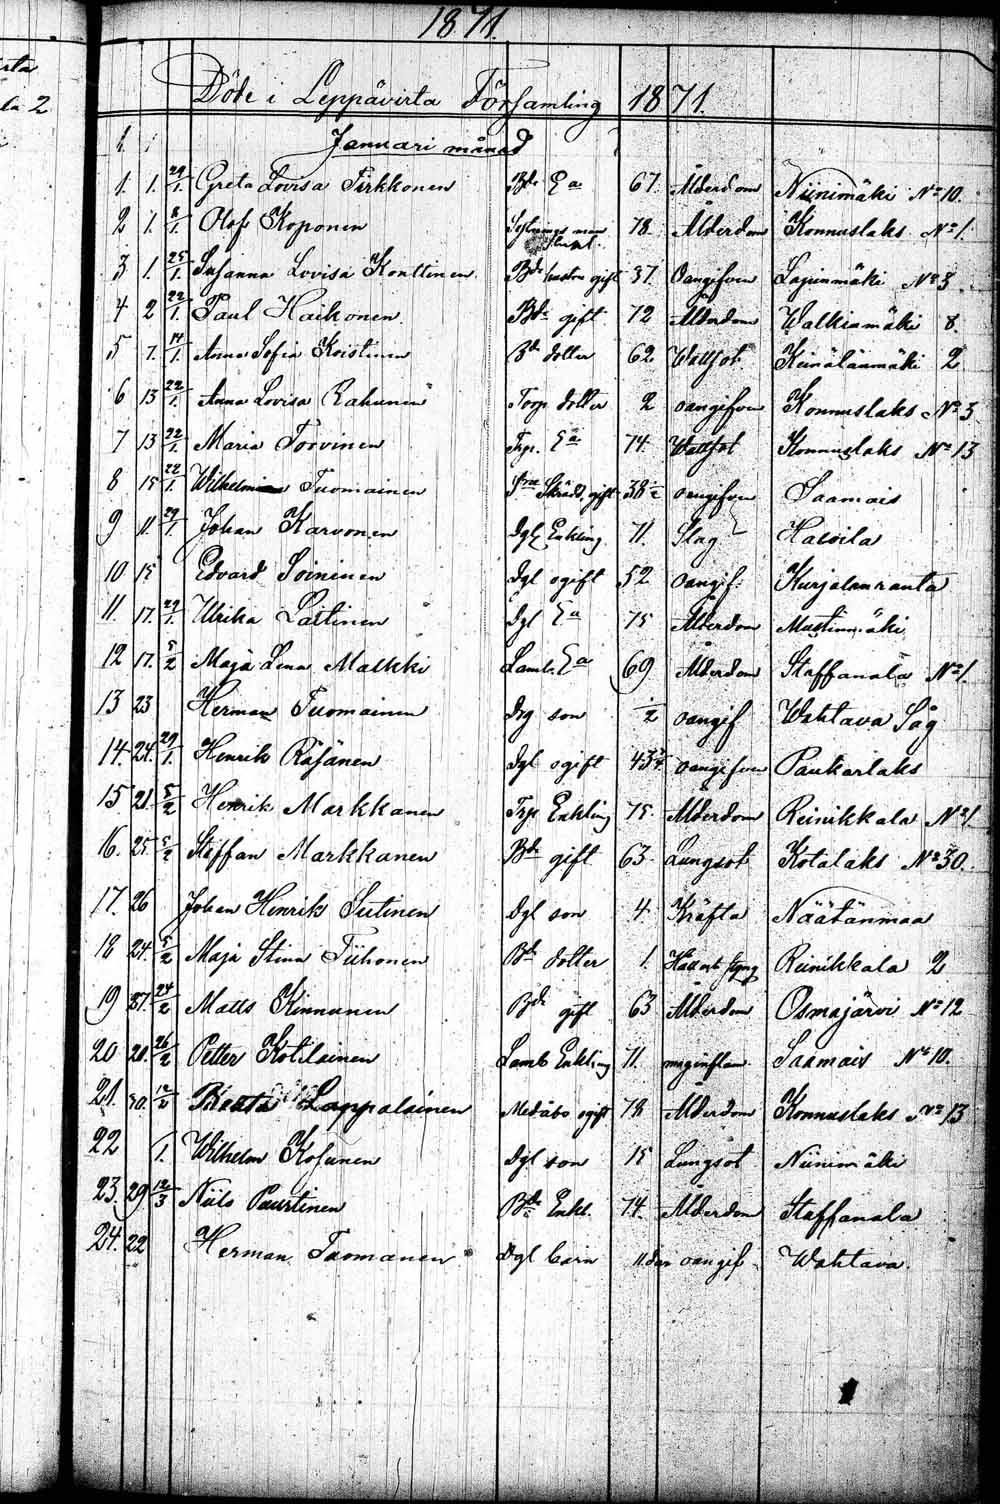 1871.
rta
la 2
Döde i Leppävirta Församling 1871.
Januari månad
1. 1. 29/1. Greta Lovisa Tirkkonen Bde Ea 67. Ålderdom Niinimäki No 10.
2 1. 8/1. Olof Koponen 78 Ålderdom Konnuslaks No 1.
3 1. 25/1. Susanna Lovisa Konttinen Bde hustru gift 37. Oangifven Lapinmäki No 3.
4 2 22/1. Paul Haikonen. Bde gift 72 Ålderdom Walkiamäki 8.
5 7. 14/1. Anna Sofia Koistinen Bde dotter 62. Wattsot. Keinälänmäki 2
6 13 22/1. Anna Lovisa Rahunen Torp dotter 2 oangifven Konnuslaks No 3
7 13 22/1. Maria Torvinen Trp. Ea 74. Wattsot Konnuslaks No 13
8 15 22/1. Wilhelmina Tuomainen Skrädd. gift 38 oangifven Saamais
9 11. 29/1. Johan Karvonen Dgl Enkling 71. Slag Halvila
10 15 Edvard Soininen Dgl ogift 52 oangif. Kurjalanranta
11. 17. 29/1. Ulrika Laitinen Dgl Ea 75 Ålderdom Mustinmäki
12 17. 5/2 Maja Lena Malkki Lamb. Ea 69 Ålderdom Staffanala No 1.
13 23 Herman Tuomainen Drg son 1/2 oangif Wahtava Såg
14. 24. 29/1. Henrik Räsänen Dgl ogift 43 oangifven Paukarlaks
15 21. 5/2 Henrik Markkanen Trp Enkling 75. Ålderdom Reinikkala No 1.
16. 25. 5/2 Staffan Markkanen Bde gift 63. Lungsot Kotalaks No 30.
17. 26 Johan Henrik Sutinen Dgl son 4. Kräfta Näätänmaa
18 24. 5/2 Maja Stina Tiihonen Bde dotter 1. Håll och styng Reinikkala 2
19 27. 24/2 Matts Kinnunen Bde gift 63 Ålderdom Osmajärvi No 12
20 20. 26/2 Petter Kotilainen Lamb Enkling 71. maginflam Saamais No 10.
21. 30. 12/2 Beata Lappalainen Medåbo ogift 78 Ålderdom Konnuslaks No 13
22 1. Wilhelm Kosunen Dgl son 15 Lungsot Niinimäki
23. 29 12/3 Niils Paurtinen Bde Enkl. 74. Ålderdom Staffanala
24. 22 Herman Tuomanen Dgl barn 11. dar oangif Wahtava.